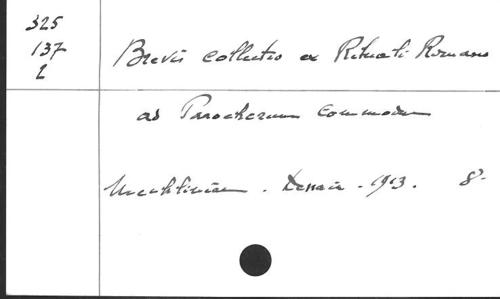 325
137
2
Brevis collectio ex Rituali Romano
ad Parochorum commodum
Mechliniae. Dessain. 1913. 8°